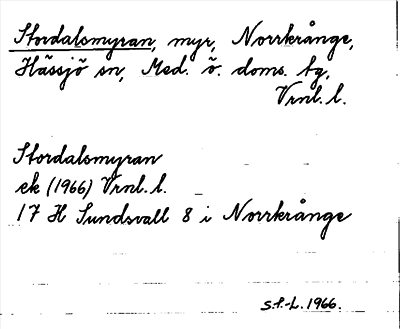 Stordalsmyran, myr, Norrkrånge,
Hässjö sn, Med. ö. doms. tg,
Vrnl. l.
Stordalsmyran
ek (1966) Vrnl. l.
17 H Sundsvall 8 i Norrkrånge
S.f.-L. 1966.